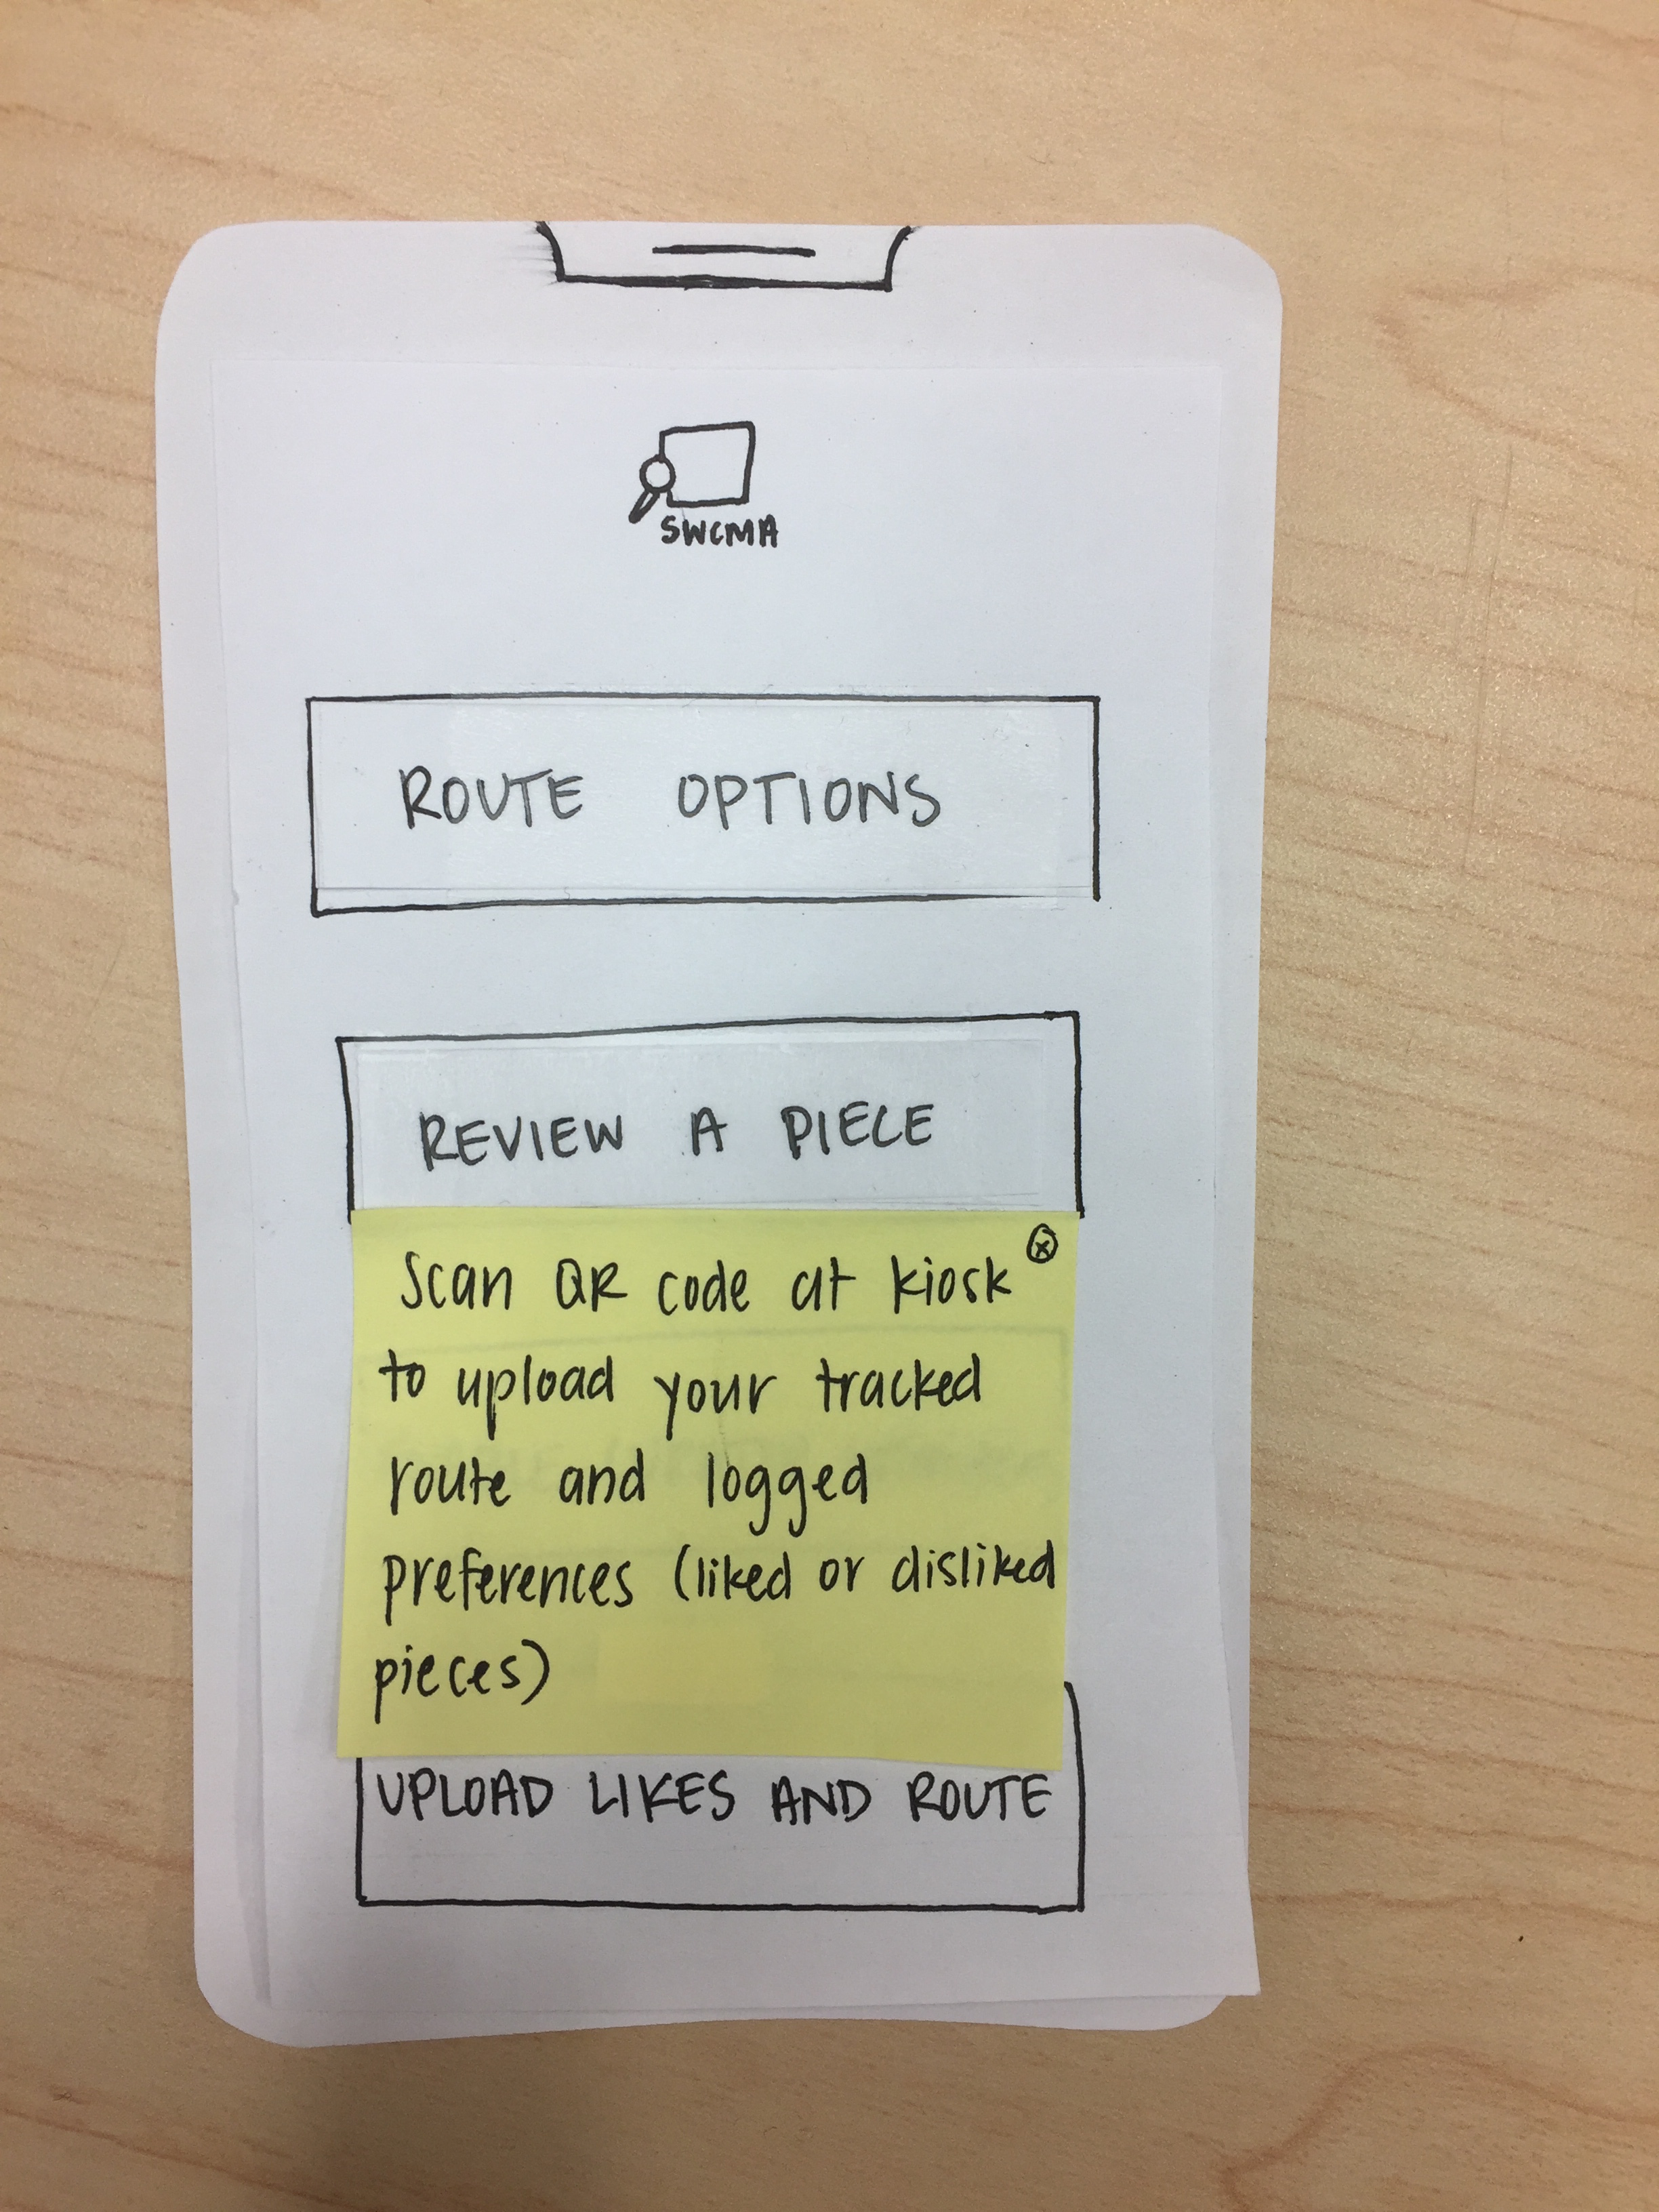 SWCMA
ROUTE OPTIONS
REVIEW A PIECE
Scan QR code at kiosk
to upload your tracked
route and logged
preferences (liked or disliked
pieces)
UPLOAD LIKES AND ROUTE